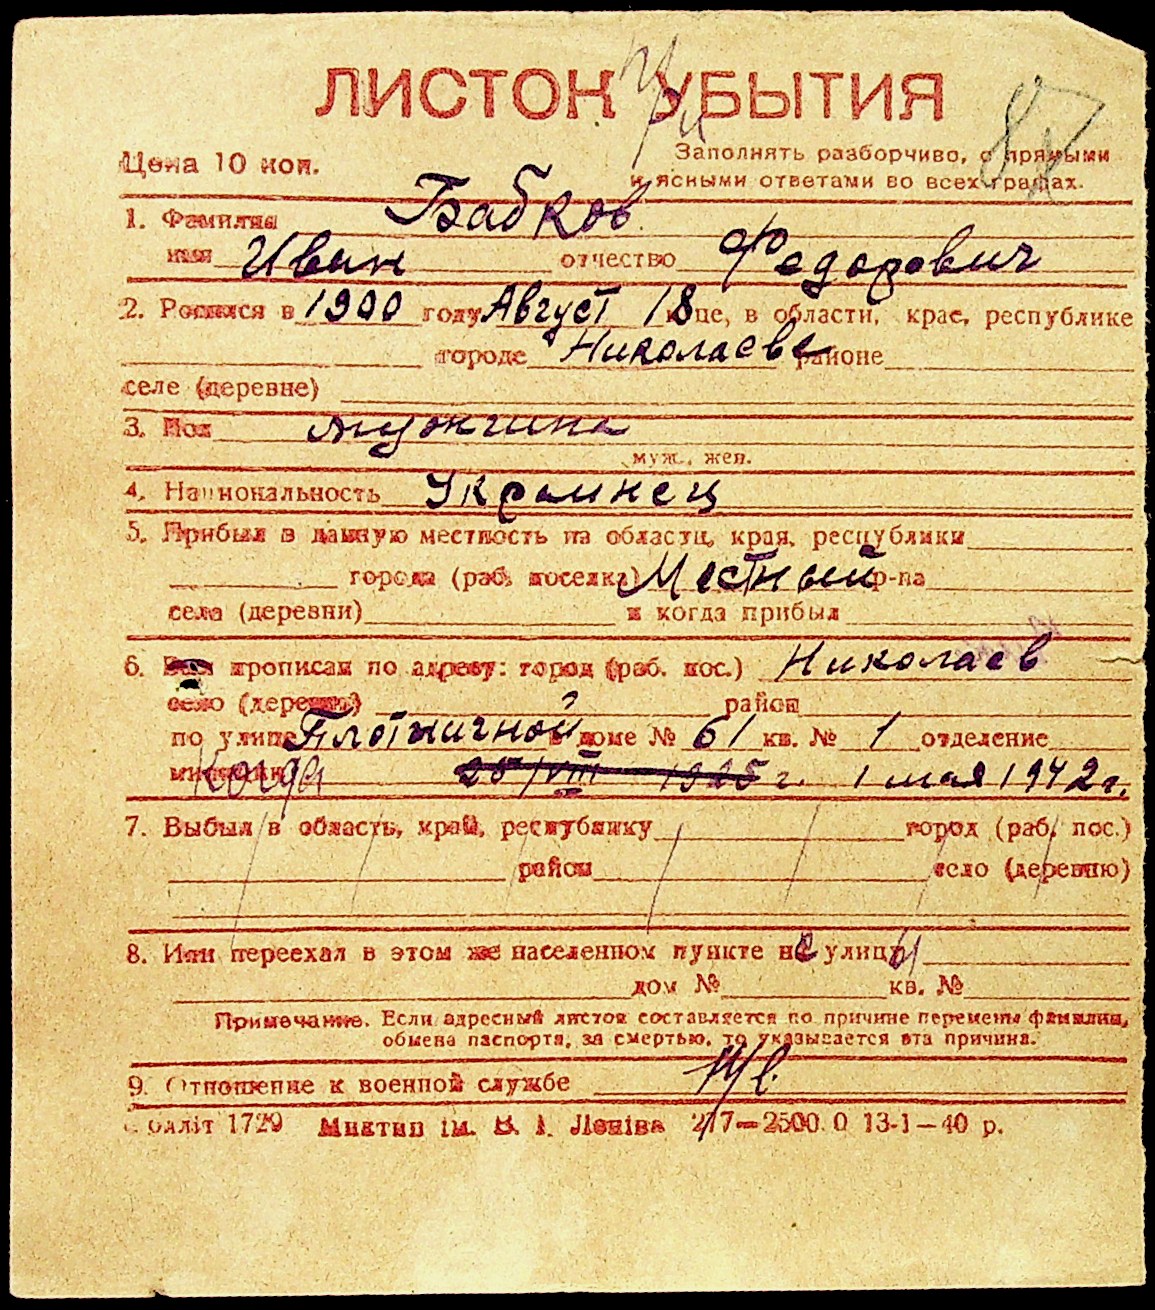 ЛИСТОК УБЫТИЯ
Цена 10 коп.
Заполнять разборчиво, с прямыми
и ясными ответами во всех графах.
1. Фамилия Бабков
имя Иван отчество Федорович
2. Родился в 1900 году Август 18 це, в области, крае, республике
городе Николаеве районе
селе (деревне)
3. Пол мужчина
муж., жен.
4. Национальность Украинец
5. Прибыл в данную местность из области, края, республики
города (раб. поселка) Местный р-на
села (деревни) и когда прибыл
6. Был прописан по адресу: город (раб. пос.) Николаев
село (деревню) район
по улице Плотничной в доме № 61 кв. № 1 отделение
милиции Когда 25/VIII 1925 г. 1 мая 1942 г.
7. Выбыл в область, край, республику город (раб. пос.)
район село (деревню)
8. Или переехал в этом же населенном пункте на улицу
дом № кв. №
Примечание. Если адресный листок составляется по причине перемены фамилии,
обмена паспорта, за смертью, то указывается эта причина.
9. Отношение к военной службе
1729 Миктип ім. В. І. Леніна 217—2500 0 13-1—40 р.